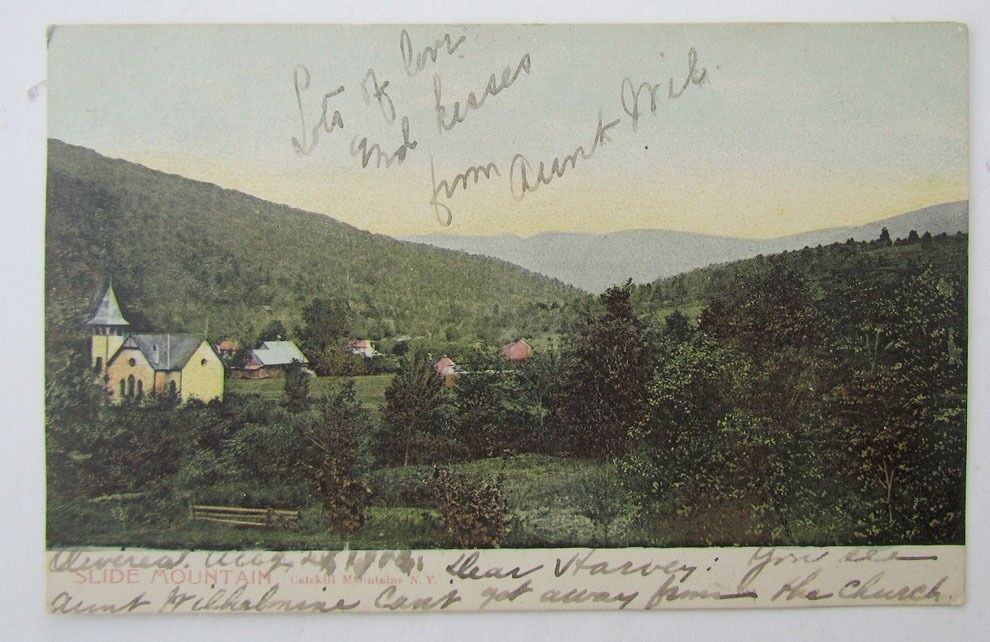 Lots of love
and kisses
from Aunt Wil.
Aug 21, Dear Harvey: You see
SLIDE MOUNTAIN, Catskill Mountains N.Y.
Aunt Wilhelmine Can't get away from the Church.